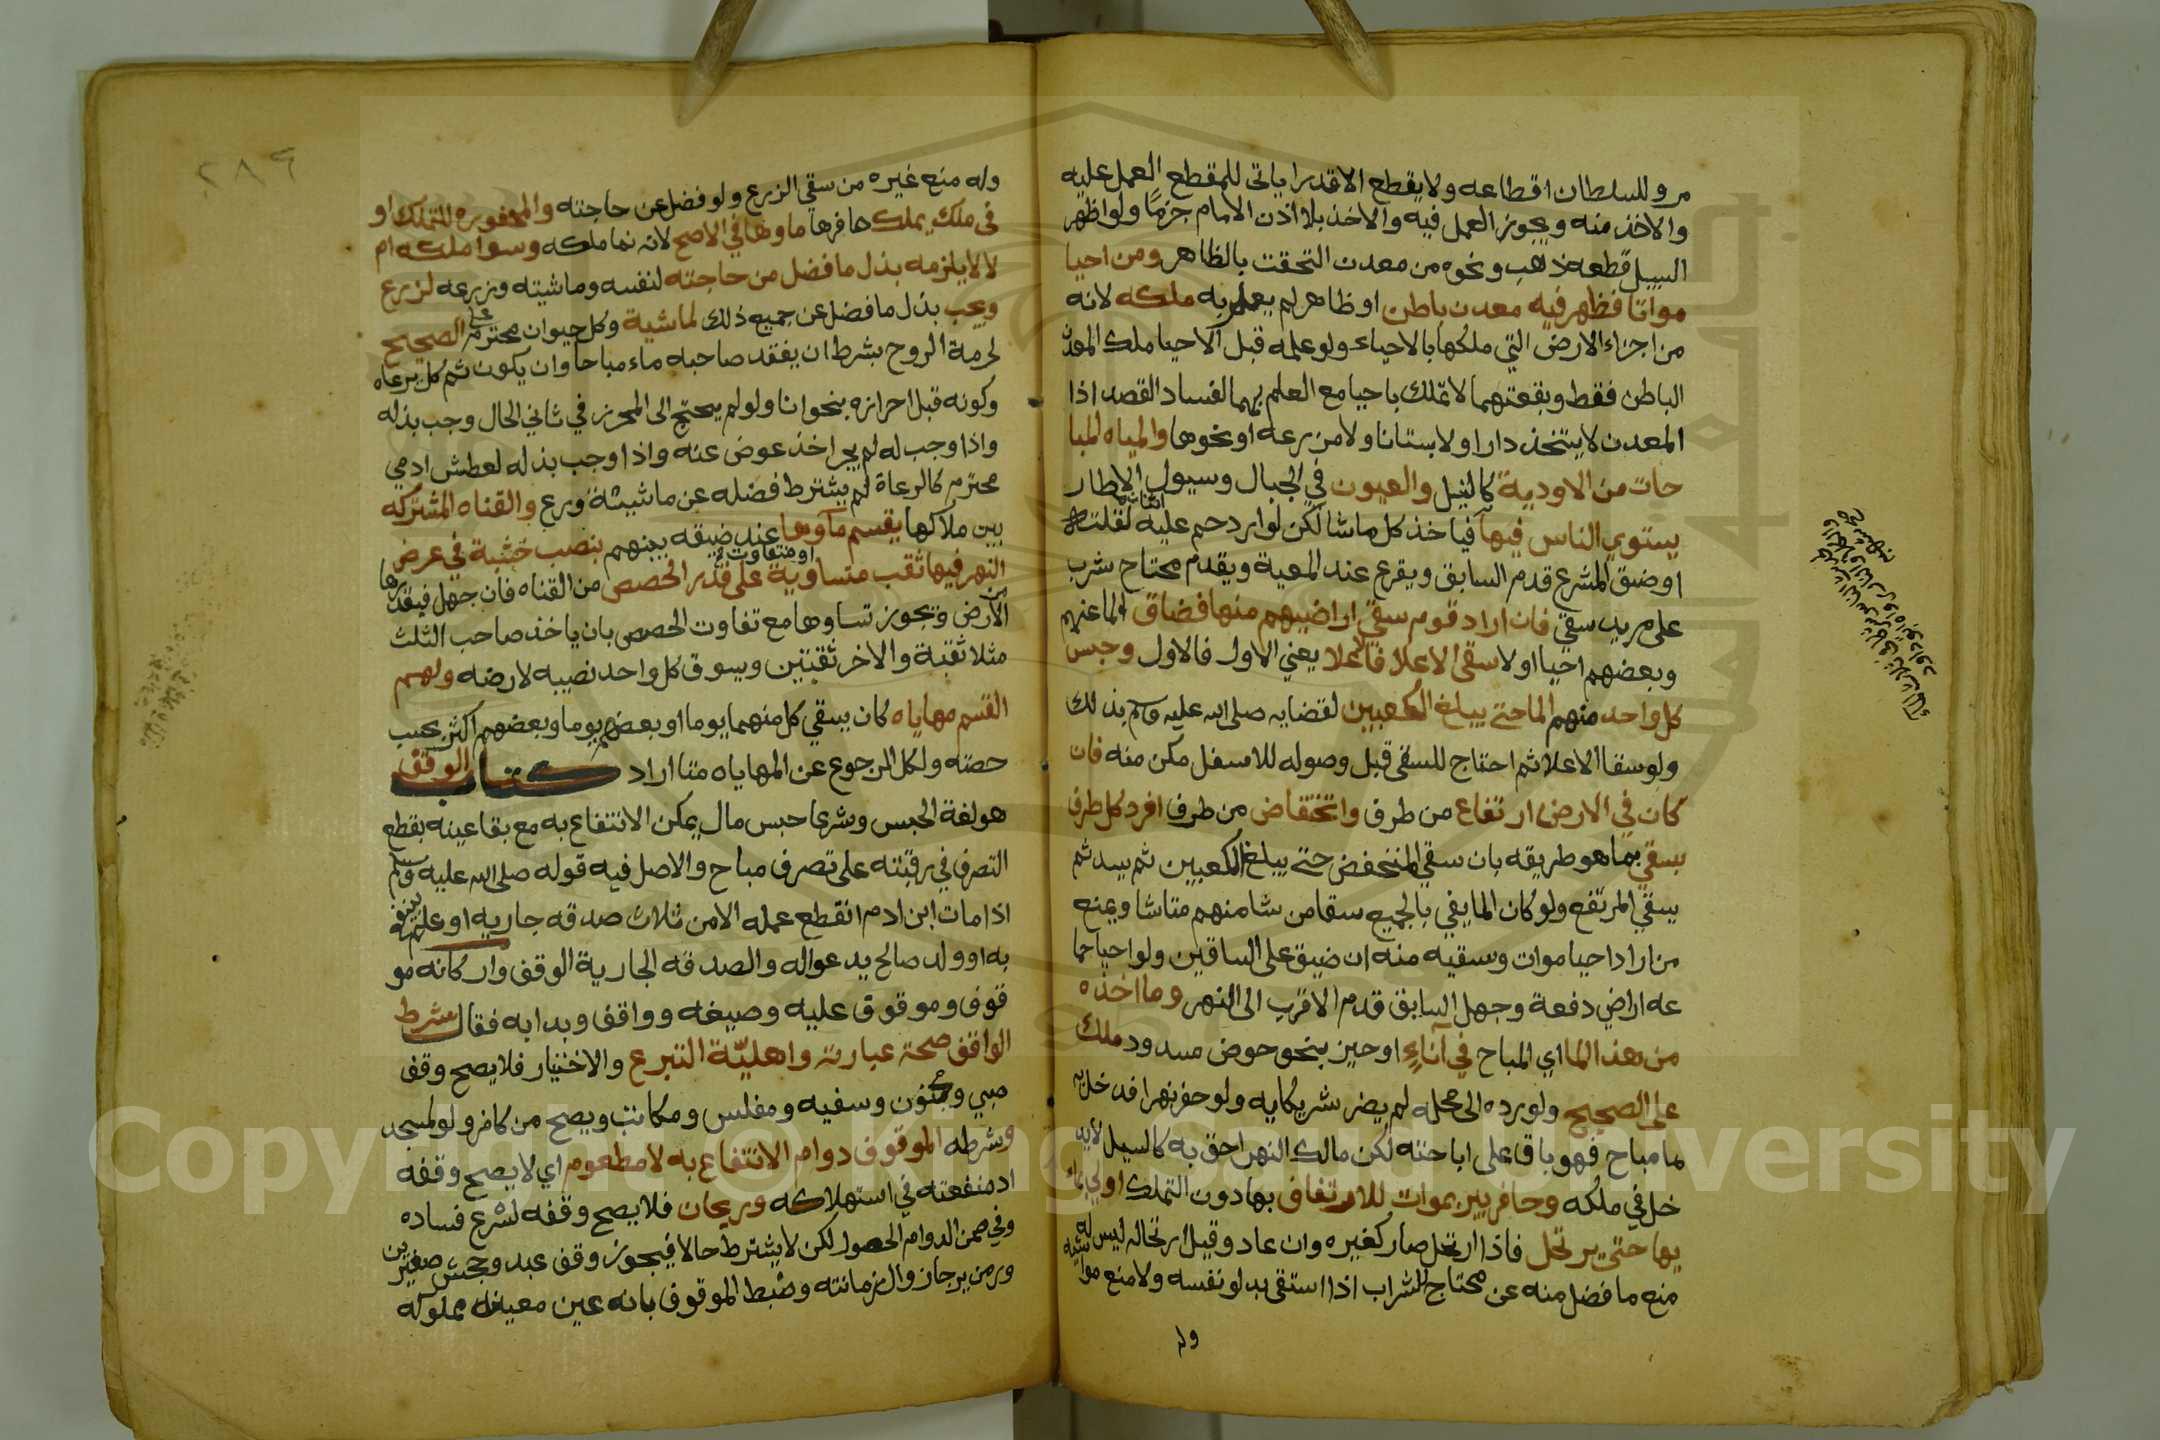 مر وللسلطان اقطاعه ولا يقطع الا قدرا ياتى للمقطع العمل عليه
والاخذ منه ويجوز العمل فيه والاخذ بلا اذن الامام جزمًا ولو اظهر
السيل قطعة ذهب ونحوه من معدن التحقت بالظاهر ومن احيا
مواتا فظهر فيه معدن باطن او ظاهر لم يعلم به ملكه لانه
من اجزاء الارض التي ملكها بالاحياء ولو علمه قبل الاحيا ملك المعدن
الباطن فقط وبقعتهما لا تملك باحيا مع العلم بهما لفساد القصد اذا
المعدن لا يتخذ دارا ولا بستانا ولا مزرعه او نحوها والمياه المبا
حات من الاودية كالنيل والعيون في الجبال وسيول الامطار
يستوي الناس فيها فياخذ كل ماشا لكن لو ازدحم عليه اثنان لقلته
او ضيق المشرع قدم السابق ويقرع عند المعية ويقدم محتاج شرب
على مريد سقي فان اراد قوم سقي اراضيهم منها فضاق الما عنهم
وبعضهم احيا اولا سقى الاعلا فالاعلا يعني الاول فالاول وحبس
كل واحد منهم الما حتى يبلغ الكعبين لقضايه صلى الله عليه وسلم بذلك
ولو سقا الاعلا ثم احتاج للسقي قبل وصوله للاسفل مكن منه فان
كان في الارض ارتفاع من طرف وانخفاض من طرف افرد كل طرف
بسقي بما هو طريقه بان سقي المنخفض حتى يبلغ الكعبين ثم يسد ثم
يسقي المرتفع ولو كان الما يفي بالجميع سقا من شا منهم متا شا ويمنع
من اراد احيا موات وسقيه منه ان ضيق على الساقين ولو احيا جما
عه اراض دفعة وجهل السابق قدم الاقرب الى النهر وما اخذه
من هذا الما اي المباح في آناءٍ او حيز بنحو حوض مسدود ملك
على الصحيح ولو رده الى محله لم يضر شريكا به ولو حفر نهرا فدخل به
ما مباح فهو باق على اباحته لكن مالك النهر احق به كالسيل لا يد
خل في ملكه وحافر بير بموات للارتفاق بها دون التملك اولى بماء
يها حتى يرتحل فاذا ارتحل صار كغيره وان عاد وقبل ارتحاله ليس له
منع ما فضل منه عن محتاج للشراب اذا استقى بدلو نفسه ولا منع مواشيه
وله
وله منع غيره من سقي الزرع ولو فضل عن حاجته والمحفوره للتملك او
في ملك يملك حافرها ماوها في الاصح لانه نما ملكه وسوا ملكه ام
لا لا يلزمه بذل ما فضل من حاجته لنفسه وماشيته وزرعه لزرع
ويجب بذل ما فضل عن جميع ذلك لماشية وكل حيوان محترم على الصحيح
لحرمة الروح بشرط ان يفقد صاحبه ماء مباحا وان يكون ثم كلا يرعاه
وكونه قبل احرازه بنحو انا ولو لم يحتج الى المحرز في ثاني الحال وجب بذله
واذا وجب له لم يجز اخذ عوض عنه واذا وجب بذله لعطش ادمي
محترم كالرعاة لم يشترط فضله عن ماشيته وزرع والقناه المشتركه
بين ملاكها يقسم مآوها عند ضيقه بينهم بنصب خشبة في عرض
النهر فيها ثقب متساوية او متفاوتة على قدر الحصص من القناه فان جهل فبقدرها
من الارض وتجوز تساوها مع تفاوت الحصص بان ياخذ صاحب الثلث
مثلا ثقبة والاخر ثقبتين ويسوق كل واحد نصيبه لارضه ولهم
القسم مهاياه كان يسقي كل منهما يوما او بعضهم يوما وبعضهم اكثر بحسب
حصته ولكل الرجوع عن المهاياه متا اراد كتاب الوقف
هو لغة الحبس وشرعا حبس مال يمكن الانتفاع به مع بقا عينه بقطع
التصرف في رقبته على تصرف مباح والاصل فيه قوله صلى الله عليه وسلم
اذا مات ابن ادم انقطع عمله الا من ثلاث صدقه جاريه او علم ينتفع
به او ولد صالح يدعوا له والصدقه الجارية الوقف واركانه مو
قوف وموقوف عليه وصيغه وواقف وبدا به فقال شرط
الواقف صحة عبارته واهليّة التبرع والاختيار فلا يصح وقف
صبي ومجنون وسفيه ومفلس ومكاتب ويصح من كافر ولو لمسجد
وشرطه الموقوف دوام الانتفاع به لا مطعوم اي لا يصح وقفه
اذ منفعته في استهلاكه وريحان فلا يصح وقفه لسرع فساده
وفي ضمن الدوام الحصول لكن لا يشترط حالا فيجوز وقف عبد وجحش صغيرين
وزمن يرجا زوال زمانته وضبط الموقوف بانه عين معينه مملوكه